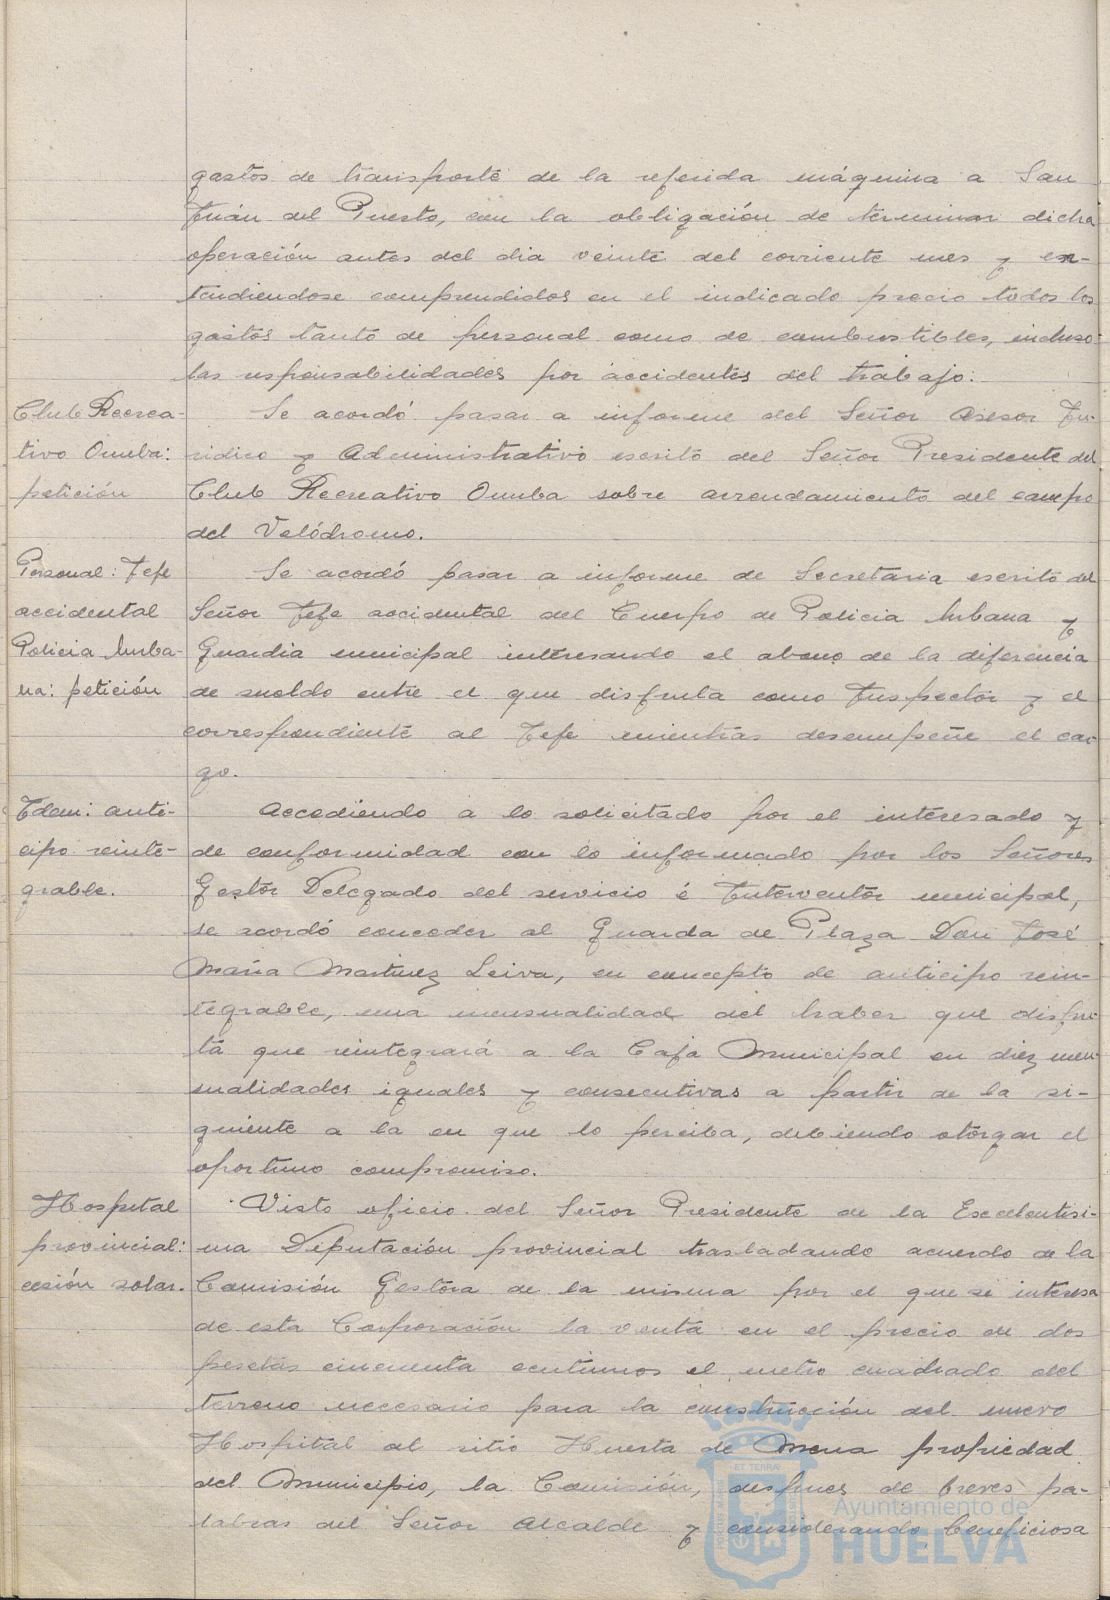 gastos de transporte de la referida máquina a San
Juán del Puerto, con la obligación de terminar dicha
operación antes del dia veinte del corriente mes y en-
tendiendose comprendidos en el indicado precio todos los
gastos tanto de personal como de combustibles, incluso
las responsabilidades por accidentes del trabajo.
Club Recrea-
tivo Onuba:
petición
Se acordó pasar a informe del Señor Asesor Ju-
ridico y Administrativo escrito del Señor Presidente del
Club Recreativo Onuba sobre arrendamiento del campo
del Velódromo.
Personal: Jefe
accidental
Policia Urba-
na: petición
Se acordó pasar a informe de Secretaria escrito del
Señor Jefe accidental del Cuerpo de Policia Urbana y
Guardia municipal interesando el abono de la diferencia
de sueldo entre el que disfruta como Inspector y el
correspondiente al Jefe mientras desempeñe el car
go.
Idem: anti-
cipo reinte-
grable.
Accediendo a lo solicitado por el interesado y
de conformidad con lo informado por los Señores
Gestor Delegado del servicio é Interventor municipal,
se acordó conceder al Guarda de Plaza Don José
Maria Martinez Leiva, en concepto de anticipo rein-
tegrable, una mensualidad del haber que disfru-
ta que reintegrará a la Caja Municipal en diez men-
sualidades iguales y consecutivas a partir de la si-
guiente a la en que lo perciba, debiendo otorgar el
oportuno compromiso.
Hospital
provincial:
cesión solar.
Visto oficio del Señor Presidente de la Excelentisi-
ma Diputación provincial trasladando acuerdo de la
Comisión Gestora de la misma por el que se interesa
de esta Corporación la venta en el precio de dos
pesetas cincuenta centimos el metro cuadrado del
terreno necesario para la construcción del nuevo
Hospital al sitio Huerta de Mena propiedad
del Municipio, la Comisión, despues de breves pa-
labras del Señor Alcalde y considerando beneficiosa
ET TERRA
Ayuntamiento de
HUELVA